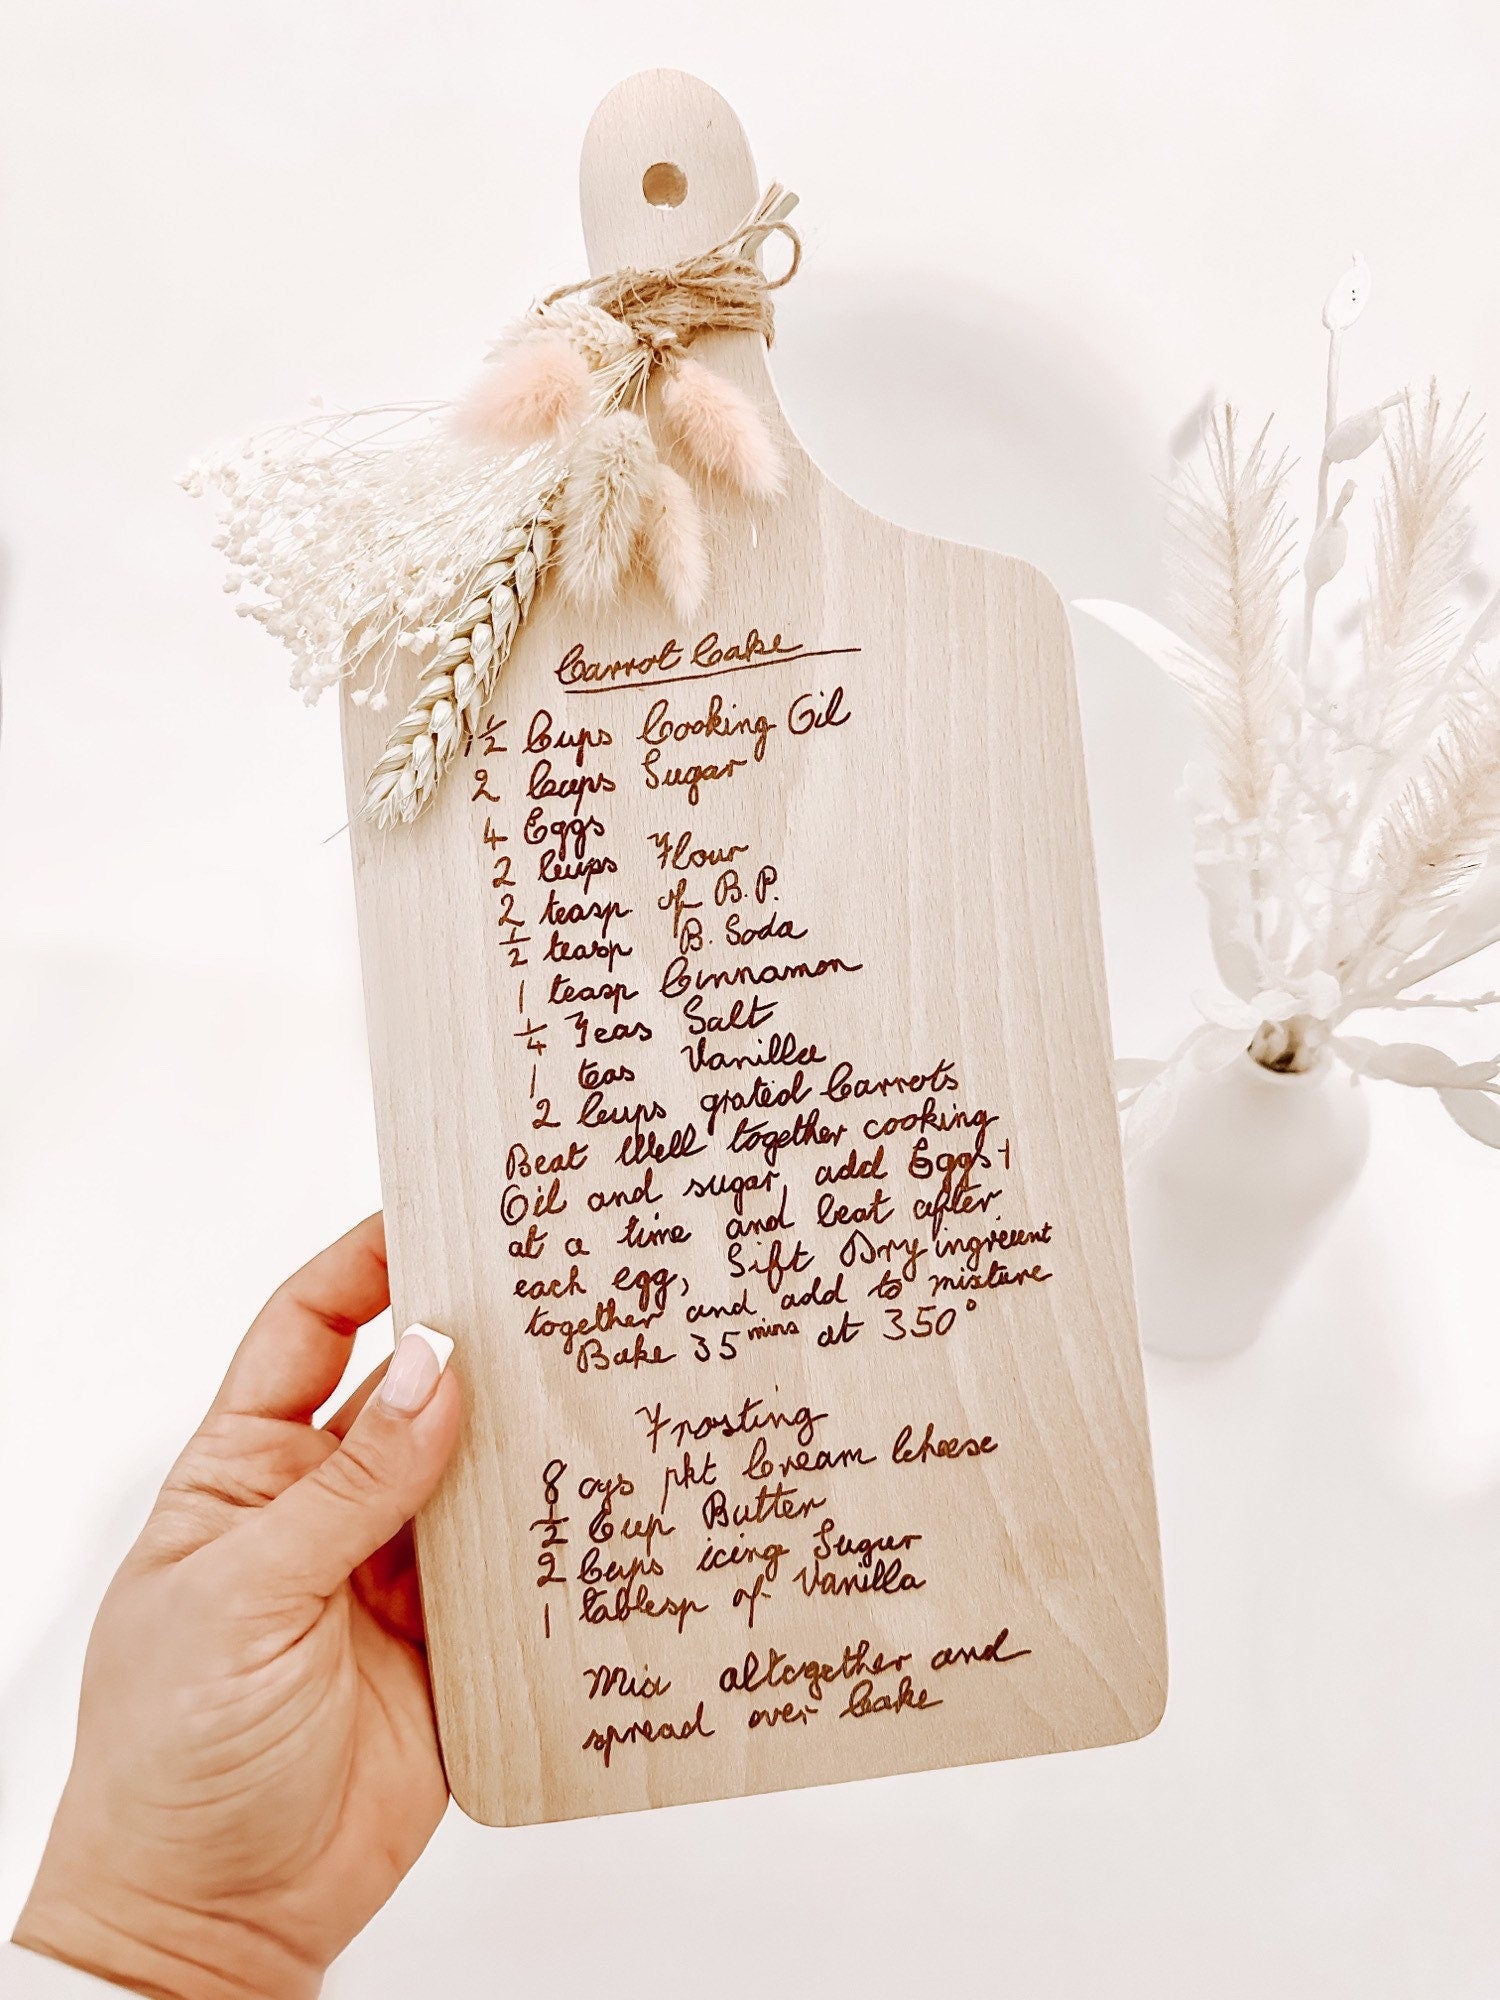 Carrot Cake
1 1/2 Cups Cooking Oil
2 Cups Sugar
4 Eggs
2 Cups Flour
2 teasp of B.P.
1/2 teasp B. Soda
1 teasp Cinnamon
1/4 Teas Salt
1 teas Vanilla
2 Cups grated Carrots
Beat Well together cooking
Oil and sugar, add Eggs 1
at a time and beat after
each egg, Sift Dry ingrieent
together and add to mixture
Bake 35 mins at 350°
Frosting
8 ozs pkt Cream Cheese
1/2 Cup Butter
2 Cups icing Sugar
1 tablesp of Vanilla
Mix altogether and
spread over Cake